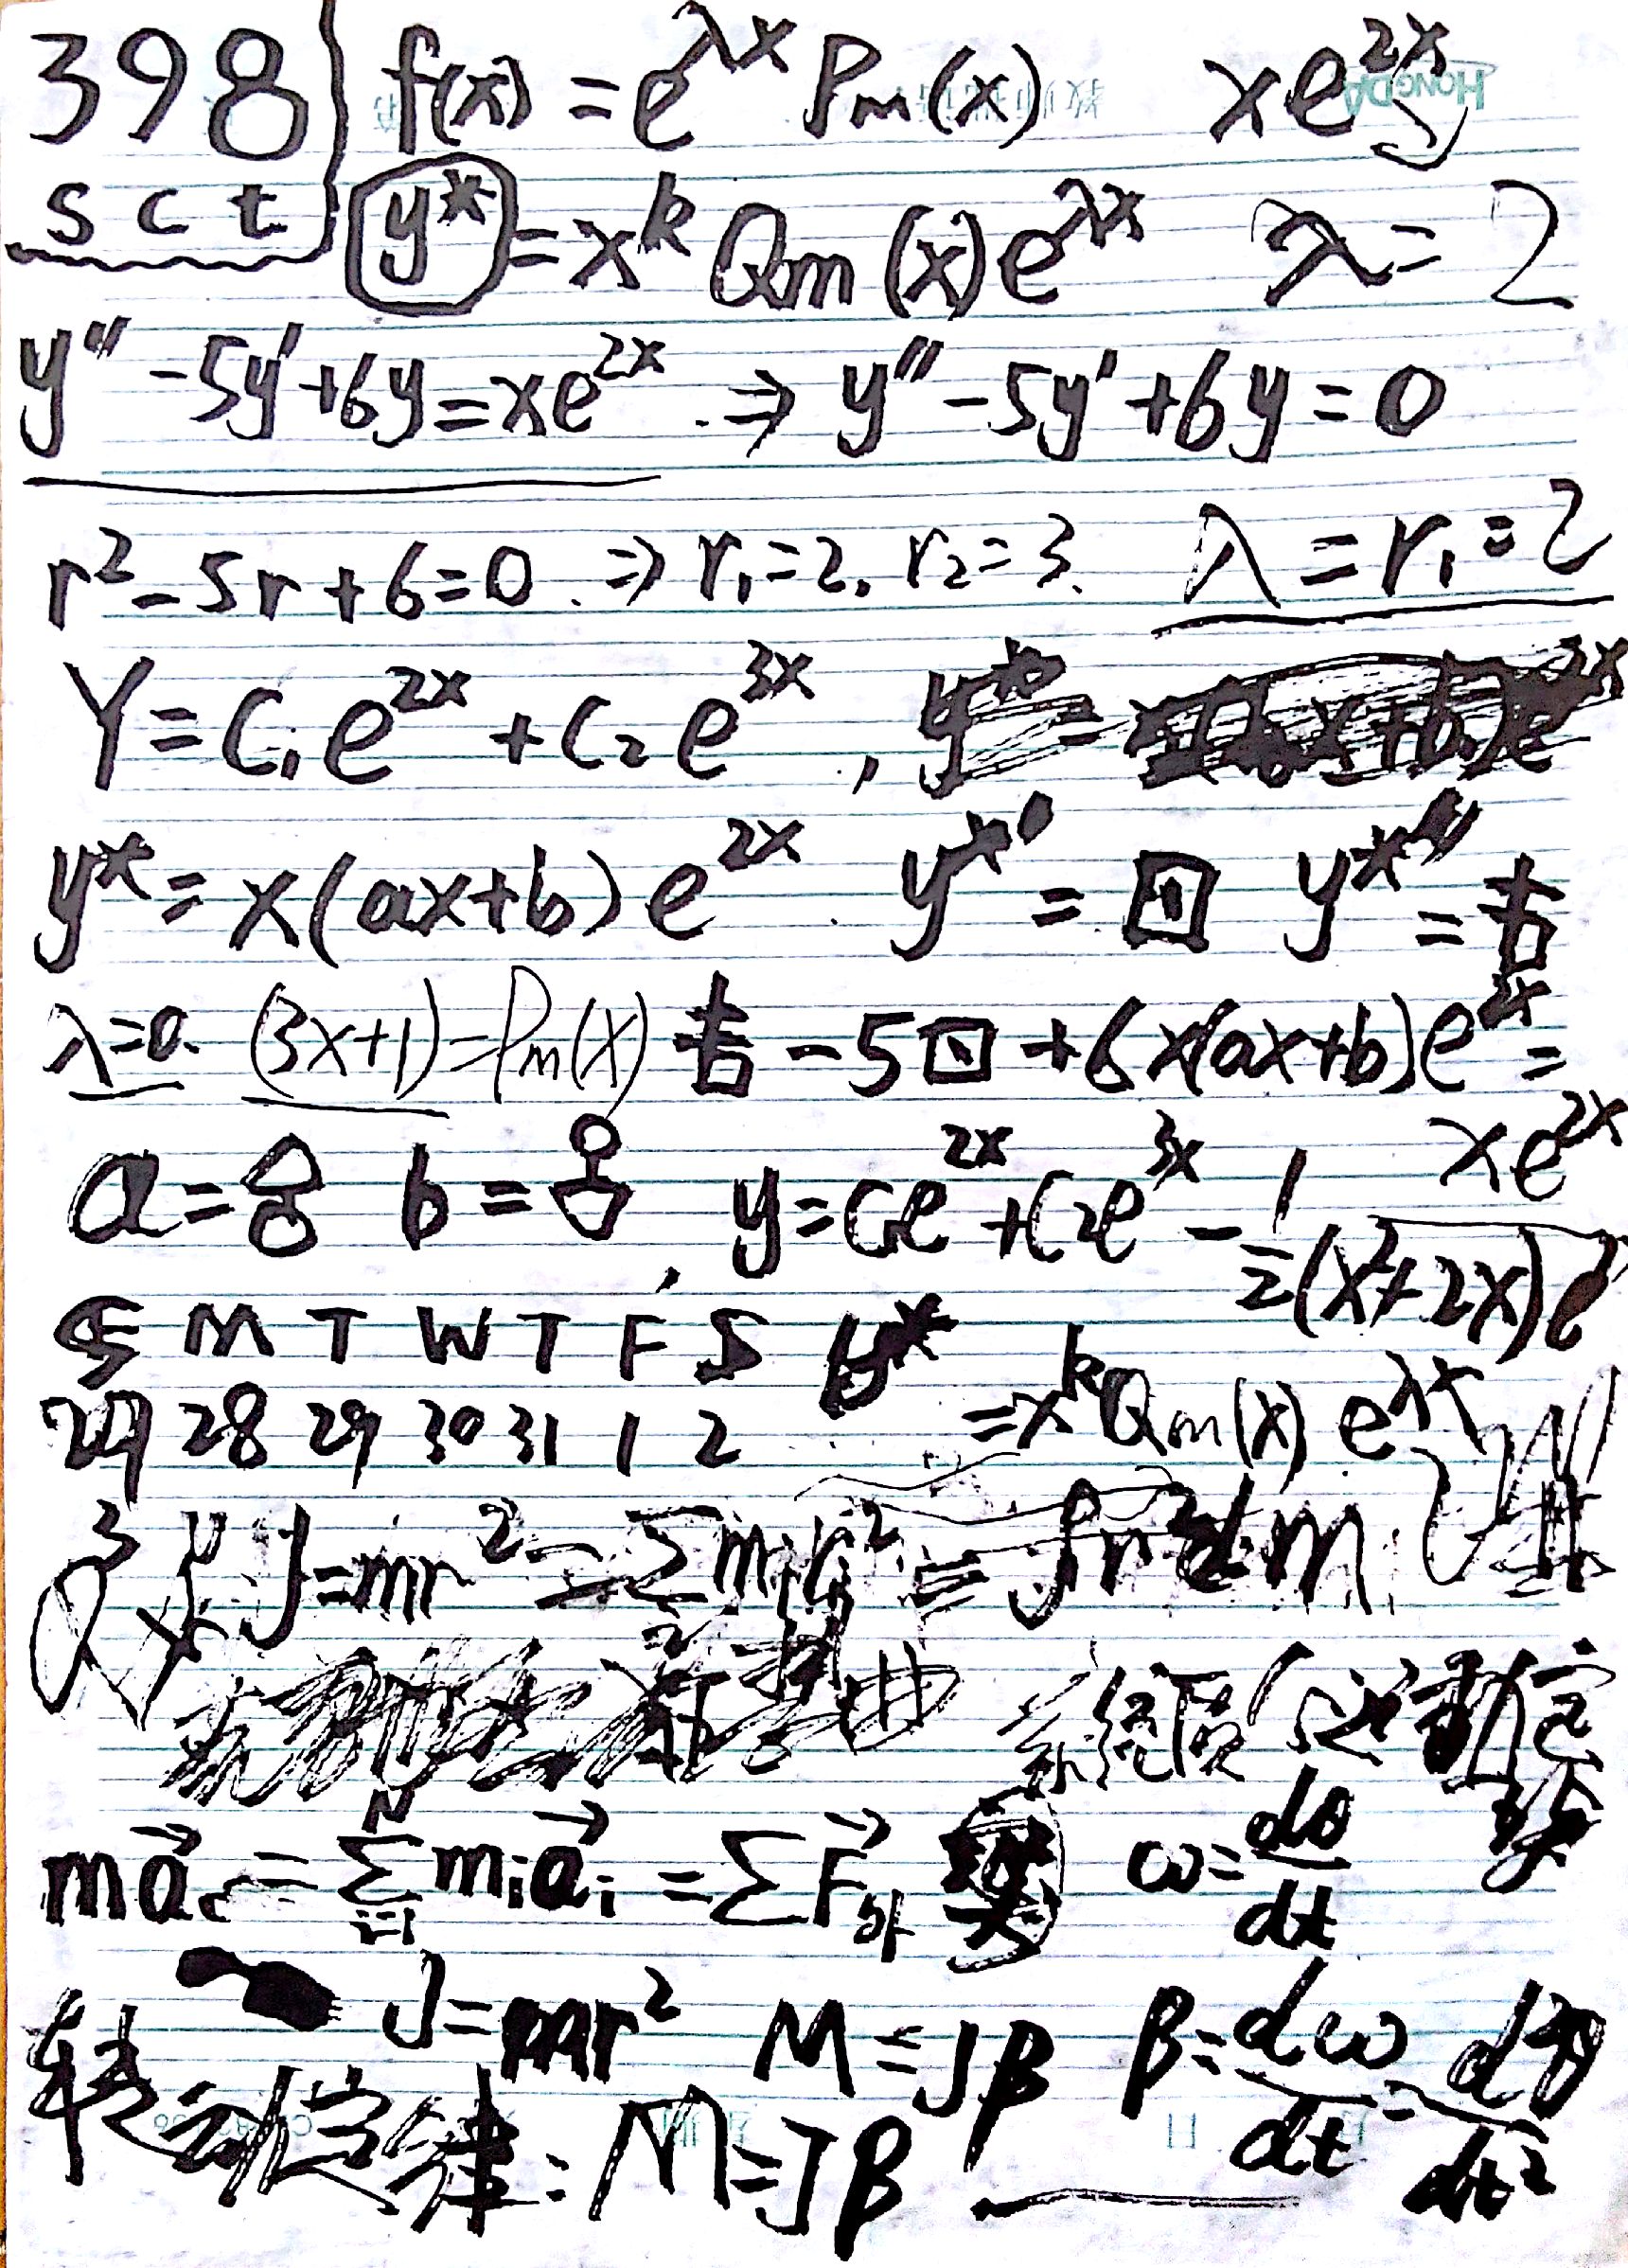 398 f(x) = e^{λx} Pm(x) xe^{2x}
sct y* = x^k Qm(x) e^{λx} λ = 2
y'' - 5y' + 6y = xe^{2x} ⇒ y'' - 5y' + 6y = 0
r² - 5r + 6 = 0 ⇒ r₁ = 2, r₂ = 3. λ = r₁ = 2
Y = C₁e^{2x} + C₂e^{3x},
y* = x(ax+b)e^{2x} y*' = y*'' =
λ=0. (3x+1) = Pm(x) - 5 + 6x(ax+b)e^{2x} =
xe^{2x}
a = b = , y = Ce^{2x} + C₂e^{3x} - 1/2(x²+2x)e
S M T W T F S y*
27 28 29 30 31 1 2 = x^k Qm(x) e^{λx}
J = mr² = Σmᵢrᵢ² = ∫r²dm
系统
ma⃗c = Σ_{i=1}^{N} mᵢa⃗ᵢ = ΣF⃗外 ω = dθ/dt
J = mr² M = Jβ β = dω/dt = d²θ/dt²
转动定律: M = Jβ